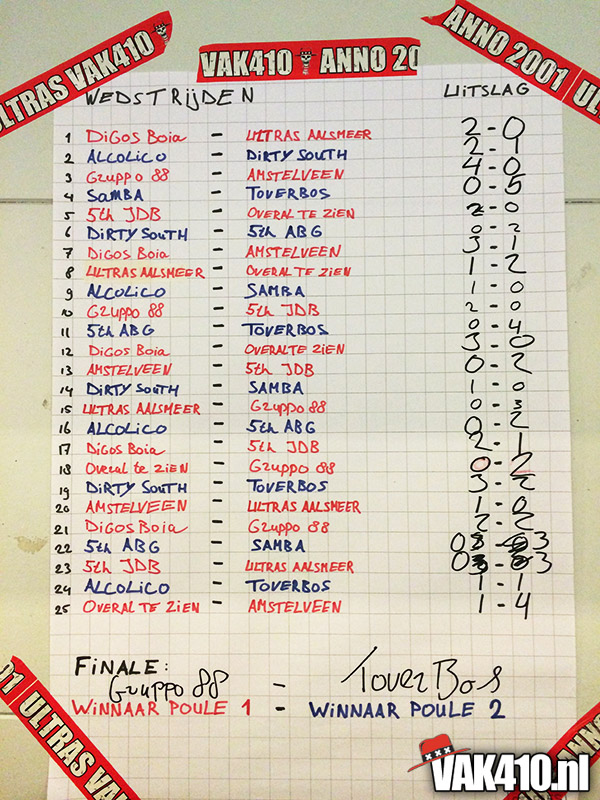 ULTRAS VAK410
VAK410 ANNO 20
ANNO 2001 UL
WEDSTRIJDEN UITSLAG
1 DiGOS BOIA - ULTRAS AALSMEER 2-0
2 ALCOLICO - DIRTY SOUTH 2-1
3 Gruppo 88 - AMSTELVEEN 4-0
4 SAMBA - TOVERBOS 0-5
5 5th JDB - OVERAL TE ZIEN 2-0
6 DIRTY SOUTH - 5th ABG 0-2
7 DIGOS BOIA - AMSTELVEEN 3-1
8 ULTRAS AALSMEER - OVERAL TE ZIEN 1-2
9 ALCOLICO - SAMBA 1-0
10 Gruppo 88 - 5th JDB 2-0
11 5th ABG - TOVERBOS 0-4
12 DIGOS BOIA - OVERAL TE ZIEN 3-0
13 AMSTELVEEN - 5th JDB 0-2
14 DIRTY SOUTH - SAMBA 1-0
15 ULTRAS AALSMEER - Gruppo 88 0-3
16 ALCOLICO - 5th ABG 0-2
17 DIGOS BOIA - 5th JDB 2-1
18 Overal te ZIEN - Gruppo 88 0-2
19 DIRTY SOUTH - TOVERBOS 3-2
20 AMSTELVEEN - ULTRAS AALSMEER 1-0
21 DIGOS BOIA - Gruppo 88 2-2
22 5th ABG - SAMBA 0-3
23 5th JDB - ULTRAS AALSMEER 0-3
24 ALCOLICO - TOVERBOS 1-1
25 OVERAL TE ZIEN - AMSTELVEEN 1-4
FINALE:
Gruppo 88 - Tover Bos
WINNAAR POULE 1 - WINNAAR POULE 2
01 ULTRAS VAK
ANNO
VAK410.nl